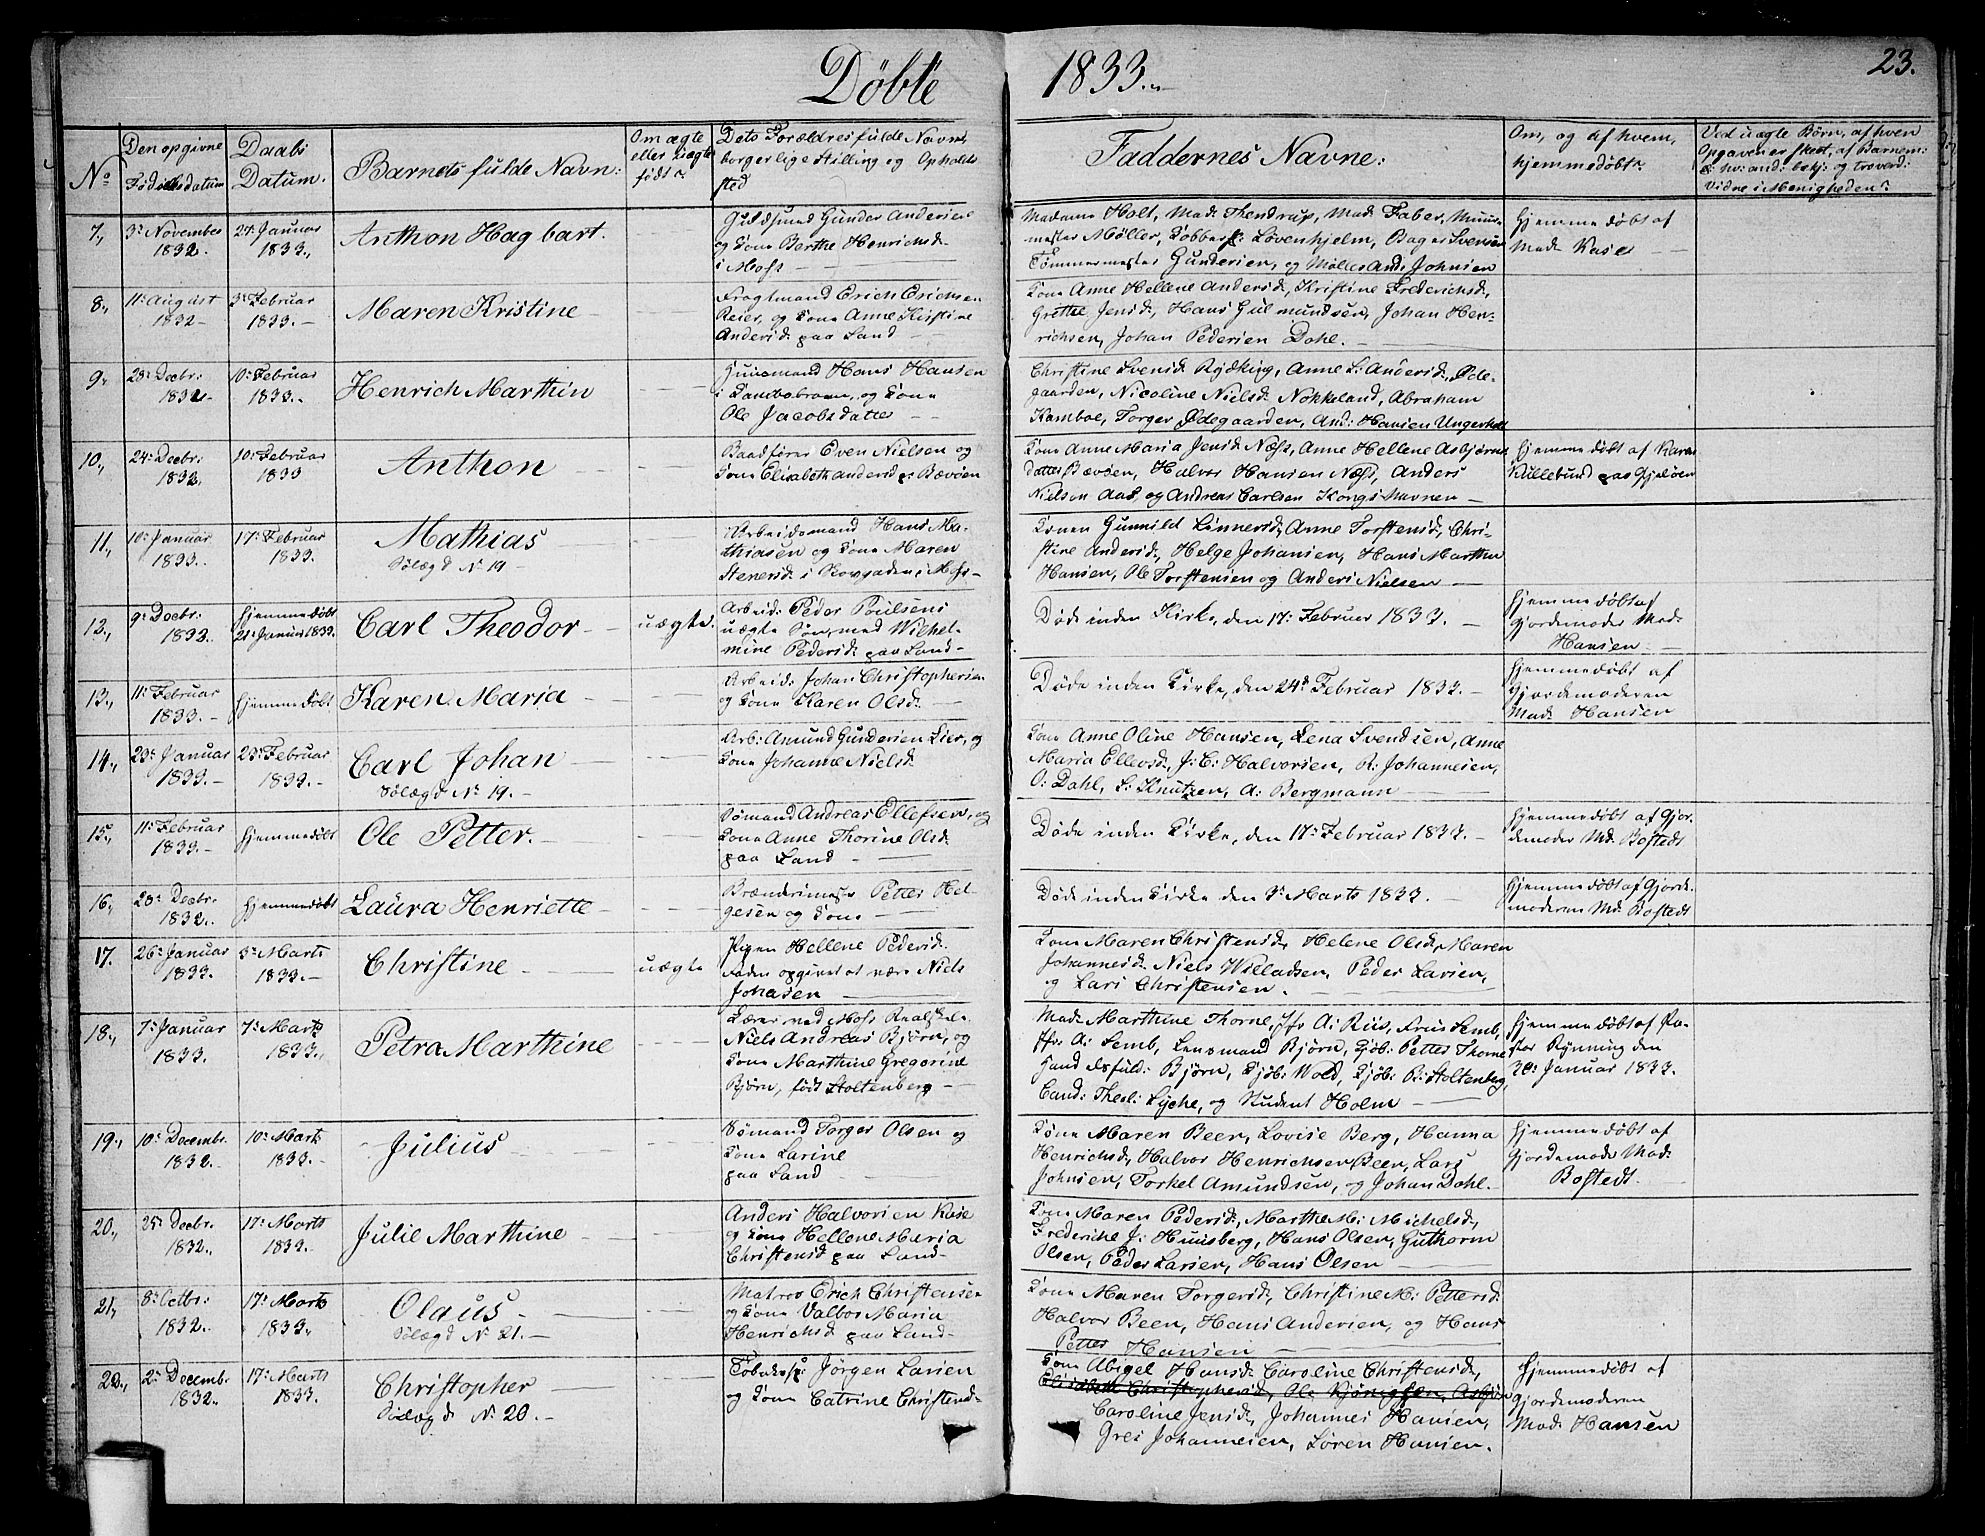 Døbte 1833.
23.
No
Den opgivne Fødselsdatum
Daabs Datum.
Barnets fulde Navn:
Om ægte eller uægte født?
Dets Forældres fulde Navne, borgerlige Stilling og Opholds sted
Faddernes Navne:
Om, og af hvem, hjemmedøbt?
Ved uægte Børn, af hven Opgaven er skeet, af Barnem:
Vidne i Menigheden?
7., 3: November 1832. 27: Januar 1833.,
Anthon Hagbart.
Guldsmed Gunder Andersen
og Kone Berthe Henrichsd:
i Moss
Madame Holt, Mad: Thendrup, Mad: Faber, Muur-
mester Møller, Kobbersl: Løvenhjelm, Bager Svensen
Tømmermester Gundersen, og Møller And: Johnsen
hjemmedøbt af
Mad: Kase
8., 11: August 1832 - 3: Februar 1833. -
Maren Kristine
Fragtmand Erich Erichsen
Reier, og Kone Anne Kirstine
Andersd: paa Land
Kone Anne Hellene Andersd:, Kristine Frederichsd:,
Grethe Jensd:, Hans Gulmundsen, Johan Hen-
richsen, Johan Pedersen Dahl.
9., 28: Decbr: 1832 10: Februar 1833.
Henrich Marthin
Huusmand Hans Hansen
i Kambobraaten, og Kone
Ole Jacobsdatter
Christine Svensd: Rydking, Anne L: Andersd:, Øde-
gaarden, Nicoline Nielsd: Nokkeland, Abraham
Kamboe, Torger Ødegaarden, And: Hansen Ungersholt
10., 24: Decbr: 1832. 10: Februar 1833
Anthon
Baadfører Even Nielsen og
Kone Elisabeth Andersd: p: Bævøen
Kone Anne Maria Jensd: Næss, Anne Hellene Asbjørns-
datter Bævøen, Halvor Hansen Næss, Anders
Nielsen Aas, og Andreas Carlsen Kongshavnen
hjemmedøbt af Karen
Kullebund paa Gjeløen
11., 10: Januar 1833. 17: Februar 1833.
Mathias
Tilægd No 19
Arbeidsmand Hans Ma-
thiasen og Kone Maren
Stenersd: i Skovgaden, i Moss
Konen Gunnild Linnersd:, Anne Torstensd:, Chri-
stine Andersd:, Helge Johansen, Hans Marthin
Hansen, Ole Torstensen og Anders Nielsen
12., 9: Decbr: 1832. hjemmedøbt 21: Januar 1833.
Carl Theodor
uægte.
Arbeid: Peder Poulsens
uægte Søn, med Wilhel-
mine Pedersd: paa Land
Døde inden Kirke, den 17: Februar 1833.
hjemmedøbt af
Gjordemoder Mad:
Hansen
13., 11: Februar 1833. hjemmedøbt
Karen Maria
Arbeid: Johan Christophersen
og Kone Karen Olsd:
Døde inden Kirke, den 24d: Februar 1833.
hjemmedøbt af
Gjordemoderen
Mad: Hansen
14., 23: Januar 1833. 23: Februar 1833.
Carl Johan
Tilægd No 19.
Arb: Amund Gundersen Lier, og
Kone Johanne Nielsd:
Kone Anne Oline Hansen, Lena Svendsen, Anne
Maria Ellevsd:, J: C: Halvorsen, R: Johannesen,
O: Dahl, L: Knutzen, A: Bergmann
15., 11: Februar 1833. hjemmedøbt
Ole Petter.
Sømand Andreas Ellefsen, og
Kone Anne Thorine Olsd:
paa Land
Døde inden Kirke, den 17: Februar 1833.
hjemmedøbt af Gjor-
demoder Md: Bostedt
16., 28: Decbr: 1832. hjemmedøbt
Laura Henriette
Brænderimester Petter Hel-
gesen og Kone
Døde inden Kirke den 3: Marts 1833.
hjemmedøbt af Gjorde-
moderen Md: Bostedt
17. 26: Januar 1833. 3: Marts 1833.
Christine
uægte
Pigen Hellene Pedersd:
Faderen opgivet at være Niels
Johasen
Kone Maren Christensd:, Helene Olsd:, Maren
Johannesd: Niels Willadsen, Peder Larsen,
og Lars Christensen.
18., 7: Januar 1833. 7: Marts 1833.,
Petra Marthine
Lærer ved Moss Realskole
Niels Andreas Bjørn, og
Kone Marthine Gregorine
Bjørn, født Stoltenberg
Mad: Marthine Thorne, Jfr A: Riis, Frue Lemb,
Jfr: A: Lemb, Lensmand Bjørn, Kjøb: Petter Thorne
Handelsfuld: Bjørn, Kjøb: Wold, Kjøb: R: Stoltenberg,
Cand: Theol: Lyche, og Student Holm
hjemmedøbt af Pa-
stor Rynning den
20: Januar 1833.
19., 10: Decembr. 1832. 10: Marts 1833.
Julius
Sømand Torger Olsen og
Kone Larine
paa Land
Kone Maren Beer, Lovise Berg, Hanna
Henrichsd:, Halvor Henrichsen Beer, Lars
Johnsen, Torkel Amundsen, og Johan Dahl.
hjemmedøbt af
Gjordemoder Mad:
Bostedt.
20., 25: Decbr. 1832., 17: Marts 1833.
Julie Marthine
Anders Halvorsen Kase
og Kone Hellene Maria
Christensd: paa Land
Kone Maren Pedersd:, Marthe M: Michelsd:,
Frederiche J: Huusberg, Hans Olsen, Guthorm
Olsen, Peder Larsen, Hans Olsen
21., 8: Octbr: 1832. 17: Marts 1833.
Olaus
Tilægd No 21.
Matros Erich Christensen
og Kone Valbor Maria
Henrichsd: paa Land
Kone Maren Torgersd:, Christine M: Pettersd:
Halvor Beer, Hans Andersen, og Hans
Petter Hansen
22., 2: Decembr. 1832. 17: Marts 1833.
Christopher
Tilægd No 20.
Tobaksp: Jørgen Larsen
og Kone Catrine Christensd
Kone Abigel Hansd: Caroline Christensd:,
Elisabeth Christophersd:, Ole
Caroline Jensd:, Johannes Hansen,
Greis Johannesen, Søren Hansen.
hjemmedøbt af
Gjordemoderen
Mad: Hansen